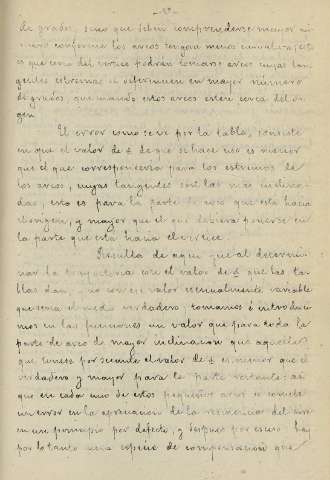 de grados, sino que deben comprenderse mayor nú-
mero conforme los arcos tengan menos curvatura, esto
es que cerca del vértice podrán tomarse arcos cuyas tan-
gentes estremas se diferencien en mayor número
de grados, que cuando estos arcos esten cerca del orí-
gen.
El error como se vé por la tabla, consiste
en que el valor de & de que se hace uso es menor
que el que correspondería para los estremos de
los arcos, cuyas tangentes sont las mas inclina-
das, esto es para la parte de arco que esta hacia
el origen, y mayor que el que debiera ponerse en
la parte que está hacia el vertice.
Resulta de aquí que al determi-
nar la trayectoria con el valor de & que las ta-
blas dan, no con el valor essencialmente variable
que sería el verdadero, tomamos é introduci-
mos en las ecuaciones un valor que para toda la
parte de arco de mayor inclinacion que aquella
que tiene por secante el valor de & es menor que el
verdadero y mayor para la parte restante; asi
que en cada uno de estos pequeños arcos se comete
un error en la apreciacion de la resistencia del aire
en un principio por defecto, y despues por esceso, hay
por lo tanto una especie de compensacion que